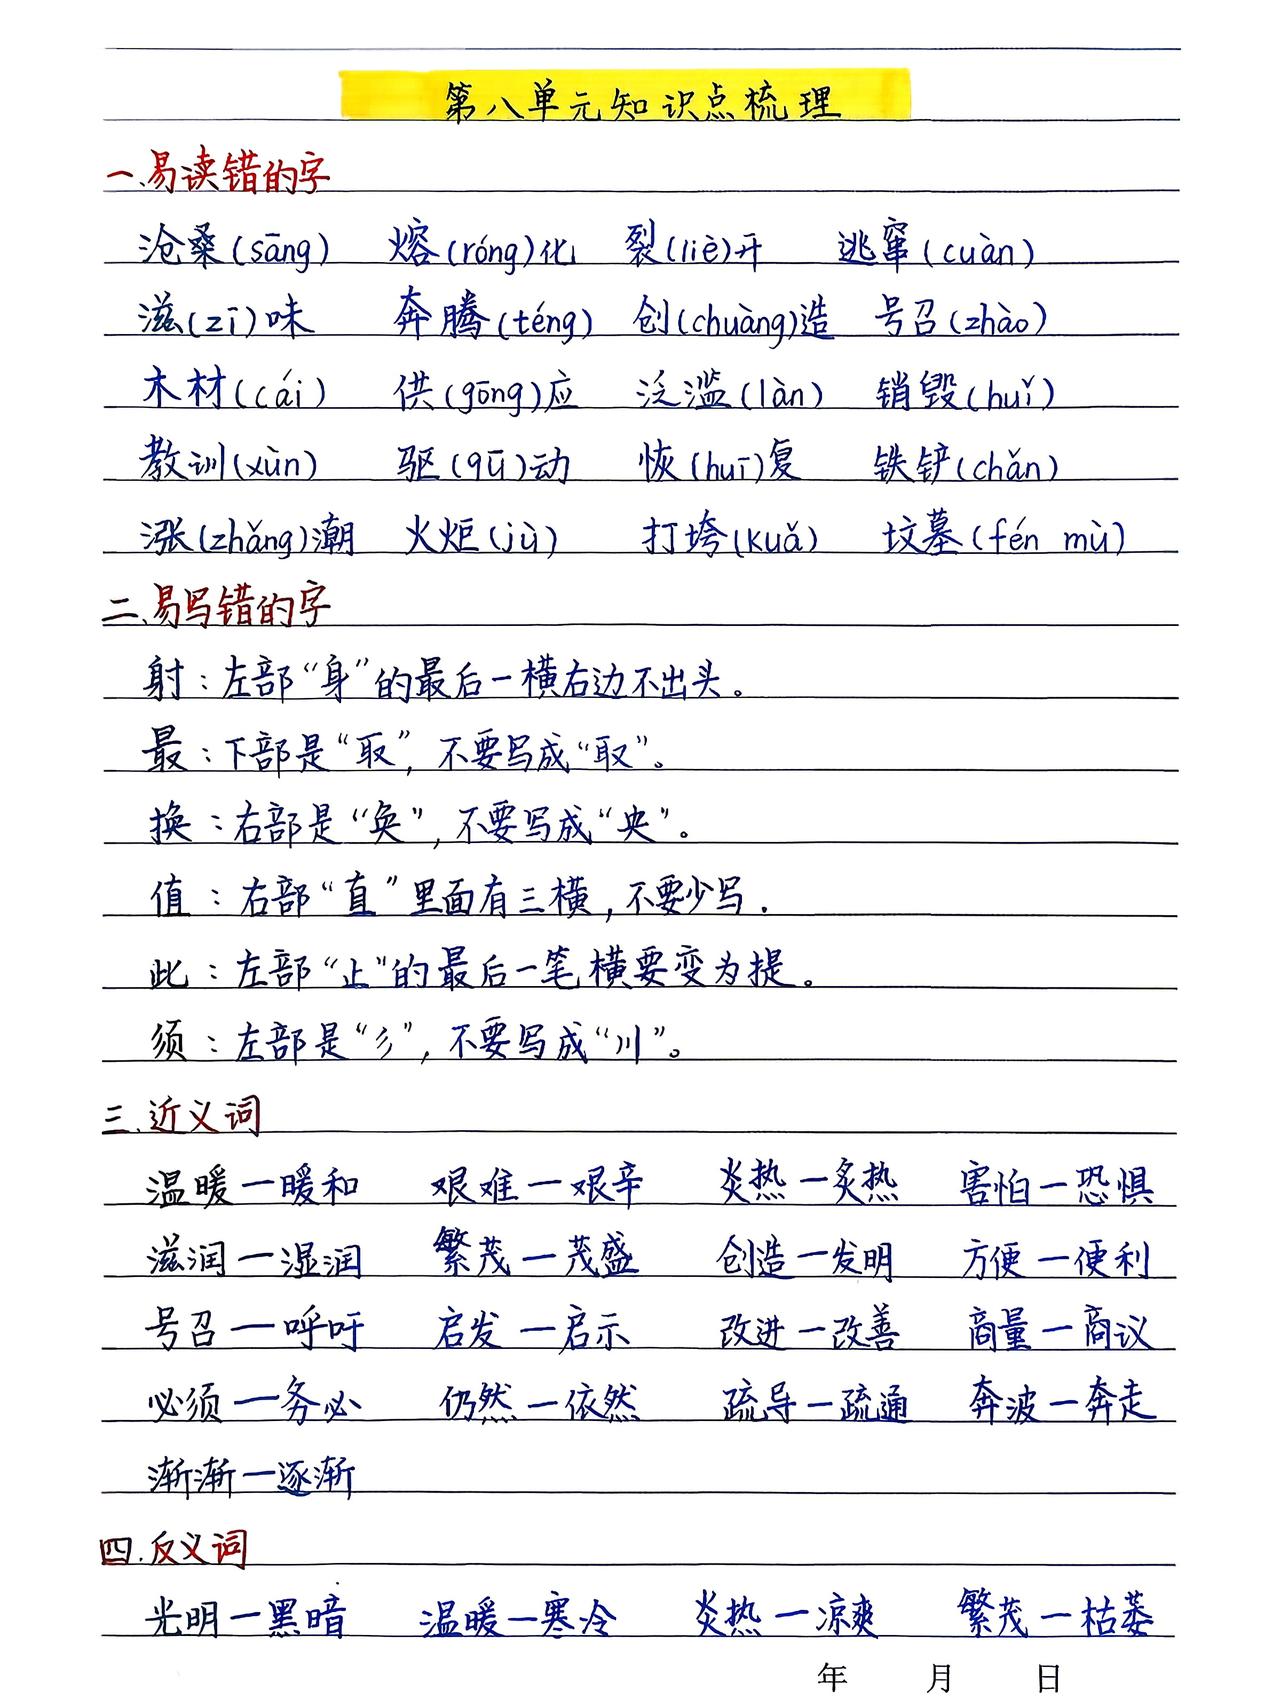 第八单元知识点梳理
一、易读错的字
沧桑(sāng) 熔(róng)化 裂(liè)开 逃窜(cuàn)
滋(zī)味 奔腾(téng) 创(chuàng)造 号召(zhào)
木材(cái) 供(gōng)应 泛滥(làn) 销毁(huǐ)
教训(xùn) 驱(qū)动 恢(huī)复 铁铲(chǎn)
涨(zhǎng)潮 火炬(jù) 打垮(kuǎ) 坟墓(fén mù)
二、易写错的字
射：左部“身”的最后一横右边不出头。
最：下部是“取”，不要写成“取”。
换：右部是“奂”，不要写成“央”。
值：右部“直”里面有三横，不要少写.
此：左部“止”的最后一笔横要变为提。
须：左部是“彡”，不要写成“川”。
三、近义词
温暖—暖和 艰难—艰辛 炎热—炙热 害怕—恐惧
滋润—湿润 繁茂—茂盛 创造—发明 方便—便利
号召—呼吁 启发—启示 改进—改善 商量—商议
必须—务必 仍然—依然 疏导—疏通 奔波—奔走
渐渐—逐渐
四.反义词
光明—黑暗 温暖—寒冷 炎热—凉爽 繁茂—枯萎
年 月 日